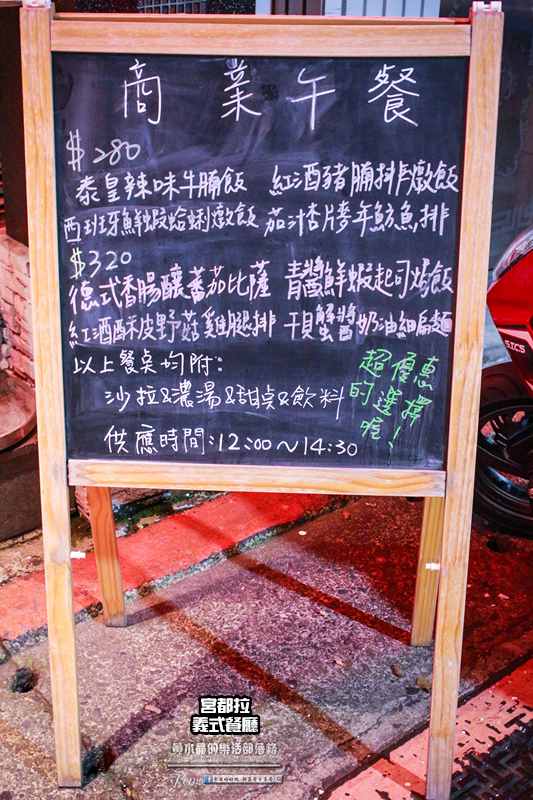 商業午餐
$280
泰皇辣味牛腩飯 紅酒豬腩排燉飯
西班牙鮮蝦蛤蜊燉飯 茄汁杏片麥年魴魚排
$320
德式香腸釀蕃茄比薩 青醬鮮蝦起司焗飯
紅酒酥皮野菇雞腿排 干貝蟹醬奶油細扁麵
以上餐桌均附：
沙拉&濃湯&甜桌&飲料
供應時間：12:00~14:30
超優惠
的選擇
喔！
SICS
宮都拉
義式餐廳
黃水晶的樂活部落格